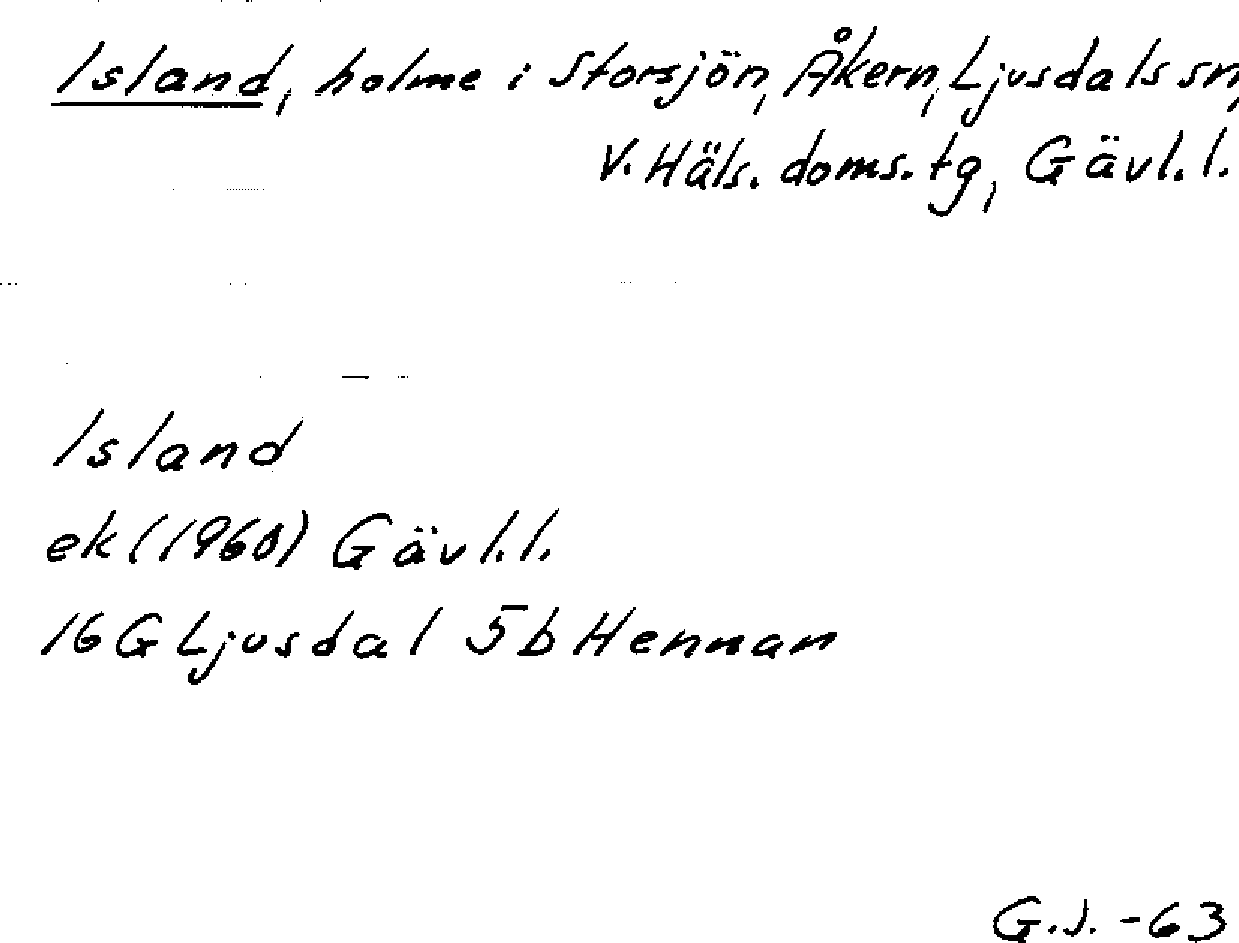 Island, holme i Storsjön, Åkern, Ljusdals sn,
V. Häls. doms. tg, Gävl. l.
Island
ek (1960) Gävl. l.
16 G Ljusdal 5b Hennan
G.J. -63